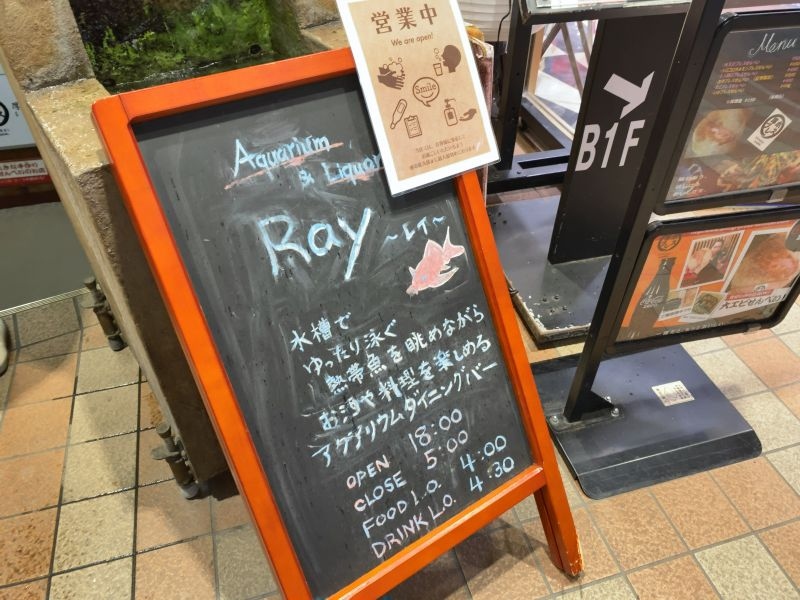 営業中
We are open!
Smile
Aquarium
& Liquor
Ray
～レイ～
水槽で
ゆったり泳ぐ
熱帯魚を眺めながら
お酒や料理を楽しめる
アクアリウムダイニングバー
OPEN 18:00
CLOSE 5:00
FOOD L.O. 4:00
DRINK L.O. 4:30
B1F
Menu
大エビせんべい